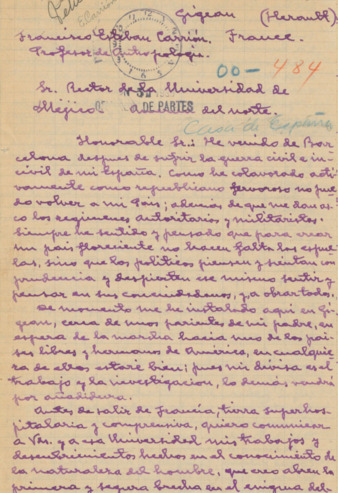 Gigean (Herault).
Francisco Esteban Carrión, France.
Profesor de Antropologia.
00-484
Sr. Rector de la Universidad de
Méjico DE PARTES del norte.
Casa de España
Honorable Sr.: He venido de Bar-
celona despues de sufrir la guerra civil e in-
civil de mi España. Como he colaborado acti-
vamente como republicano fervoroso no pue-
do volver a mi pais; además de que me dan as-
co los regimenes autoritarios y militaristas.
Siempre he sentido y pensado que para crear
un pais floreciente no hacen falta las espue-
las, sino que los politicos piensen y sientan con
prudencia y despierten ese mismo sentir y
pensar en sus conciudadanos, y a obrar todos.
De momento me he instalado aqui en Gi-
gean, cerca de unos parientes de mi padre, en
espera de la marcha hacia uno de los pai-
ses libres y hermanos de América, en cualquie-
ra de ellos estaré bien; pues mi divisa es el
trabajo y la investigacion, lo demás vendrá
por añadidura.
Antes de salir de Francia, tierra superhos-
pitalaria y comprensiva, quiero comunicar
a Vds. y a esa Universidad mis trabajos y
descubrimientos hechos en el conocimiento de
la naturaleza del hombre, que creo abren la
primera y segura brecha en el enigma del